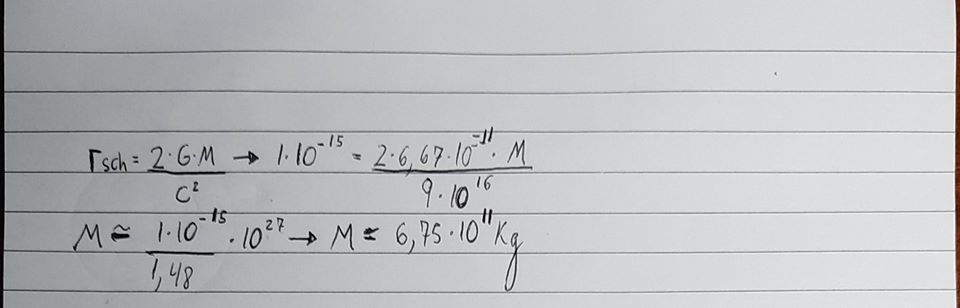 rsch = 2·G·M / C² → 1·10⁻¹⁵ = 2·6,67·10⁻¹¹·M / 9·10¹⁶
M ≃ 1·10⁻¹⁵ / 1,48 · 10²⁷ → M ≃ 6,75·10¹¹ Kg